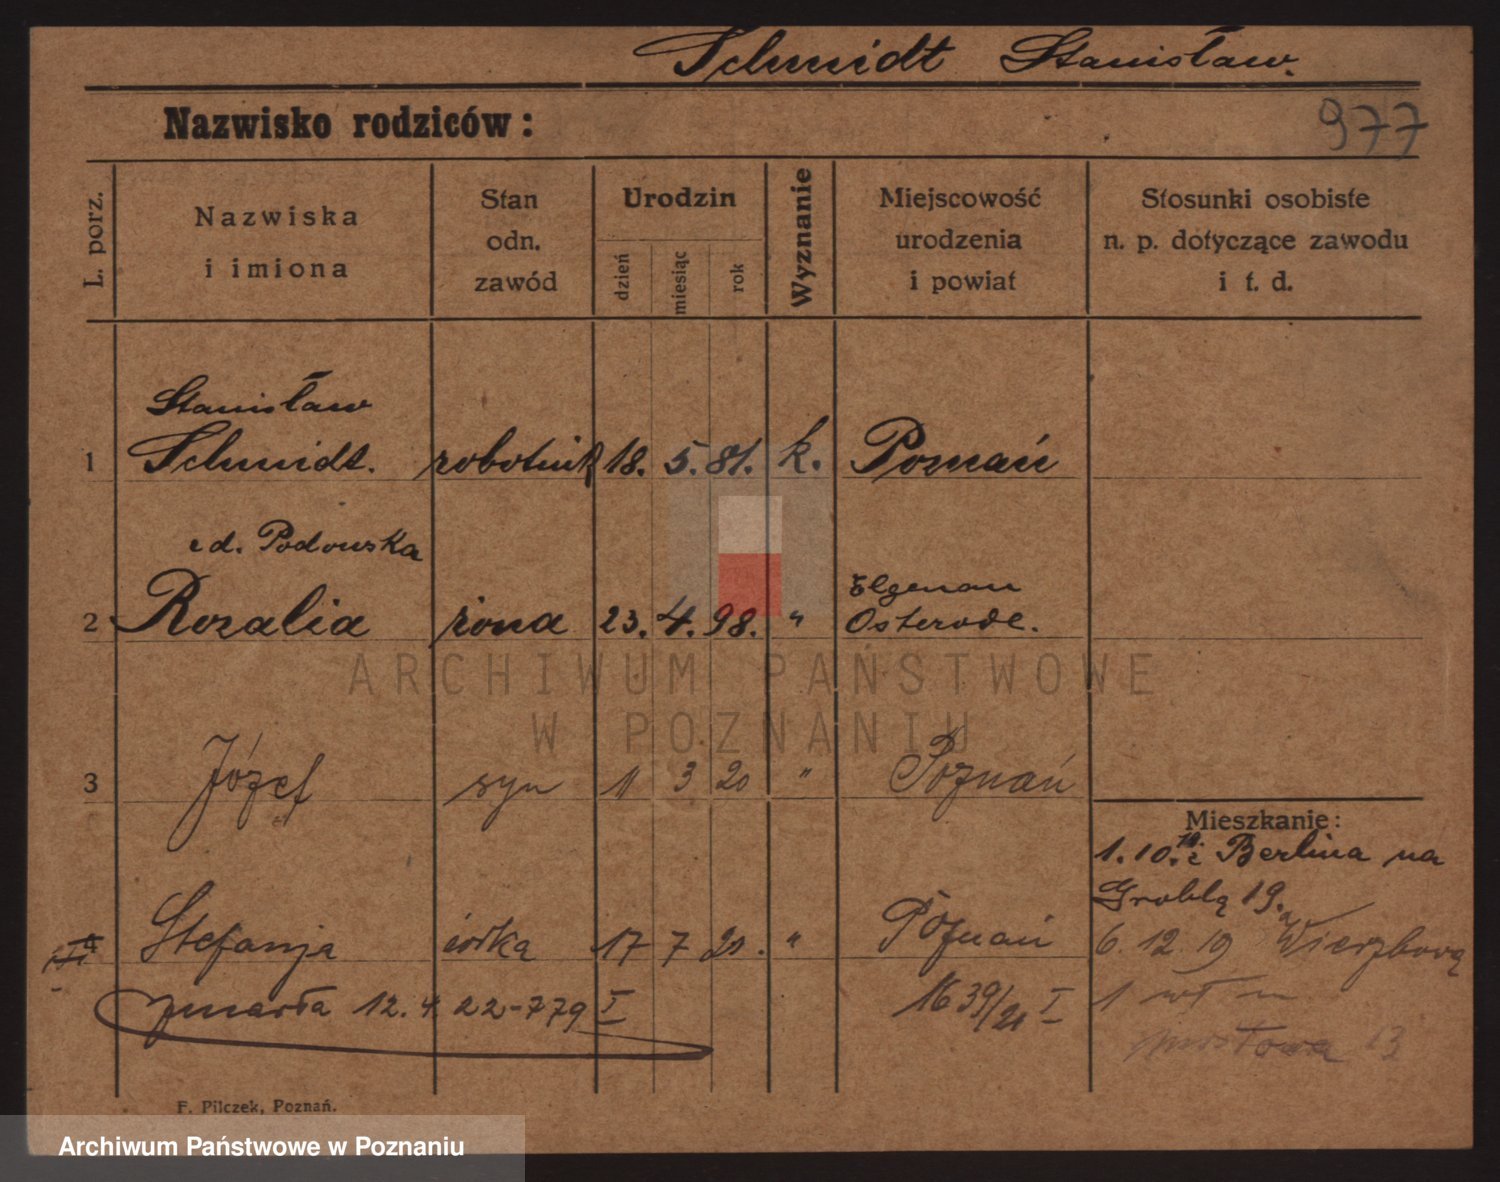 Schmidt Stanisław.
Nazwisko rodziców:
977
L. porz.
Nazwiska
i imiona
Stan
odn.
zawód
Urodzin
dzień
miesiąc
rok
Wyznanie
Miejscowość
urodzenia
i powiat
Stosunki osobiste
n. p. dotyczące zawodu
i t. d.
Stanisław
1 Schmidt. robotnik 18. 5. 81. k. Poznań
Podowska
Elgenau
2 Rozalia żona 23. 4. 98. " Osterode.
ARCHIWUM PAŃSTWOWE
W POZNANIU
3 Józef syn 11 3 20 " Poznań
Mieszkanie:
1.10.19. z Berlina na
Groblą 19.
4 Stefanja córka 17 7 21. " Poznań
6. 12. 19 Wierzbową
zmarła 12. 4 22-779 I
1639/21 I
1
Mostowa 13
F. Pilczek, Poznań.
Archiwum Państwowe w Poznaniu